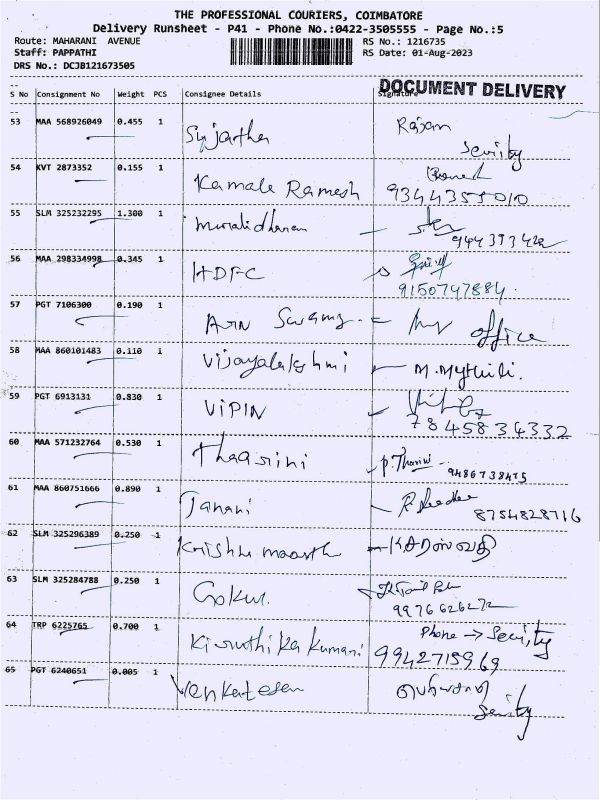 THE PROFESSIONAL COURIERS, COIMBATORE
Delivery Runsheet - P41 - Phone No.:0422-3505555 - Page No.:5
Route: MAHARANI AVENUE RS No.: 1216735
Staff: PAPPATHI RS Date: 01-Aug-2023
DRS No.: DCJB121673505
DOCUMENT DELIVERY
S No Consignment No Weight PCS Consignee Details Signature
53 MAA 568926049 0.455 1 Sujartha Rajam
Security
54 KVT 2873352 0.155 1 Kamale Ramesh
9344355010
55 SLM 325232295 1.300 1 Muralidharan
56 MAA 298334998 0.345 1 HDFC
9150747884
57 PGT 7106300 0.190 1 Arn Swamy office
58 MAA 860101483 0.110 1 Vijayalakshmi M. Mythili.
59 PGT 6913131 0.830 1 VIPIN
7845834332
60 MAA 571232764 0.530 1 Thaarini P. Tharini
9486738475
61 MAA 860751666 0.890 1 Janani
8754828716
62 SLM 325296389 0.250 1
63 SLM 325284788 0.250 1 Gokul.
9976626272
64 TRP 6225765 0.700 1 Kiruthika Kumari Phone → Security
9942715969
65 PGT 6240651 0.005 1 Venkatesan
Security